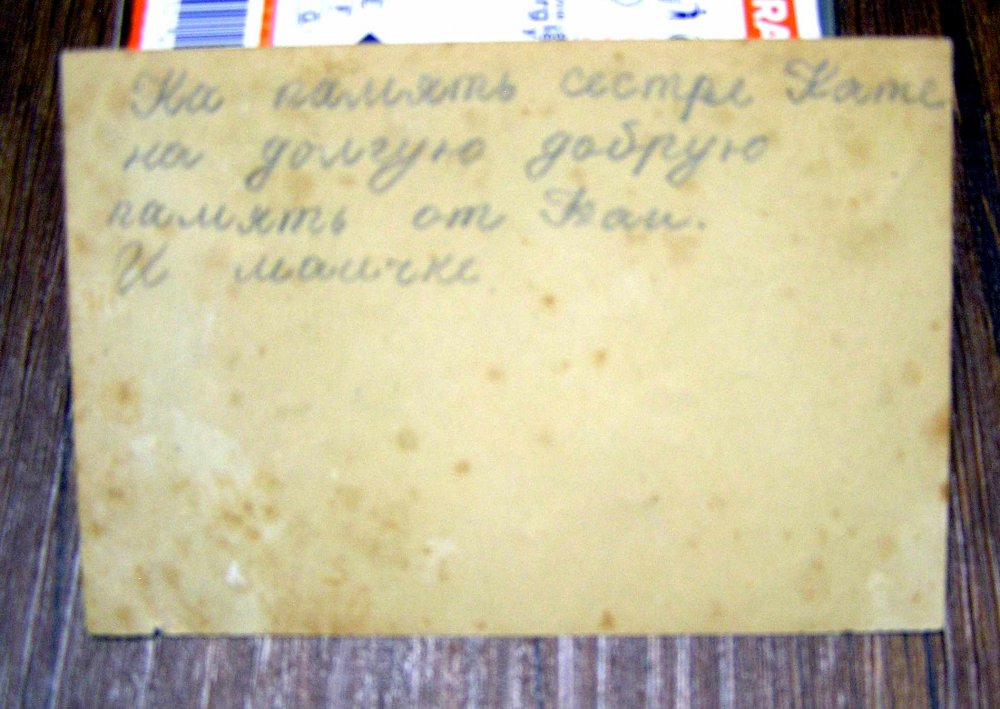 На память сестре Кате
на долгую добрую
память от Наи.
И маичке